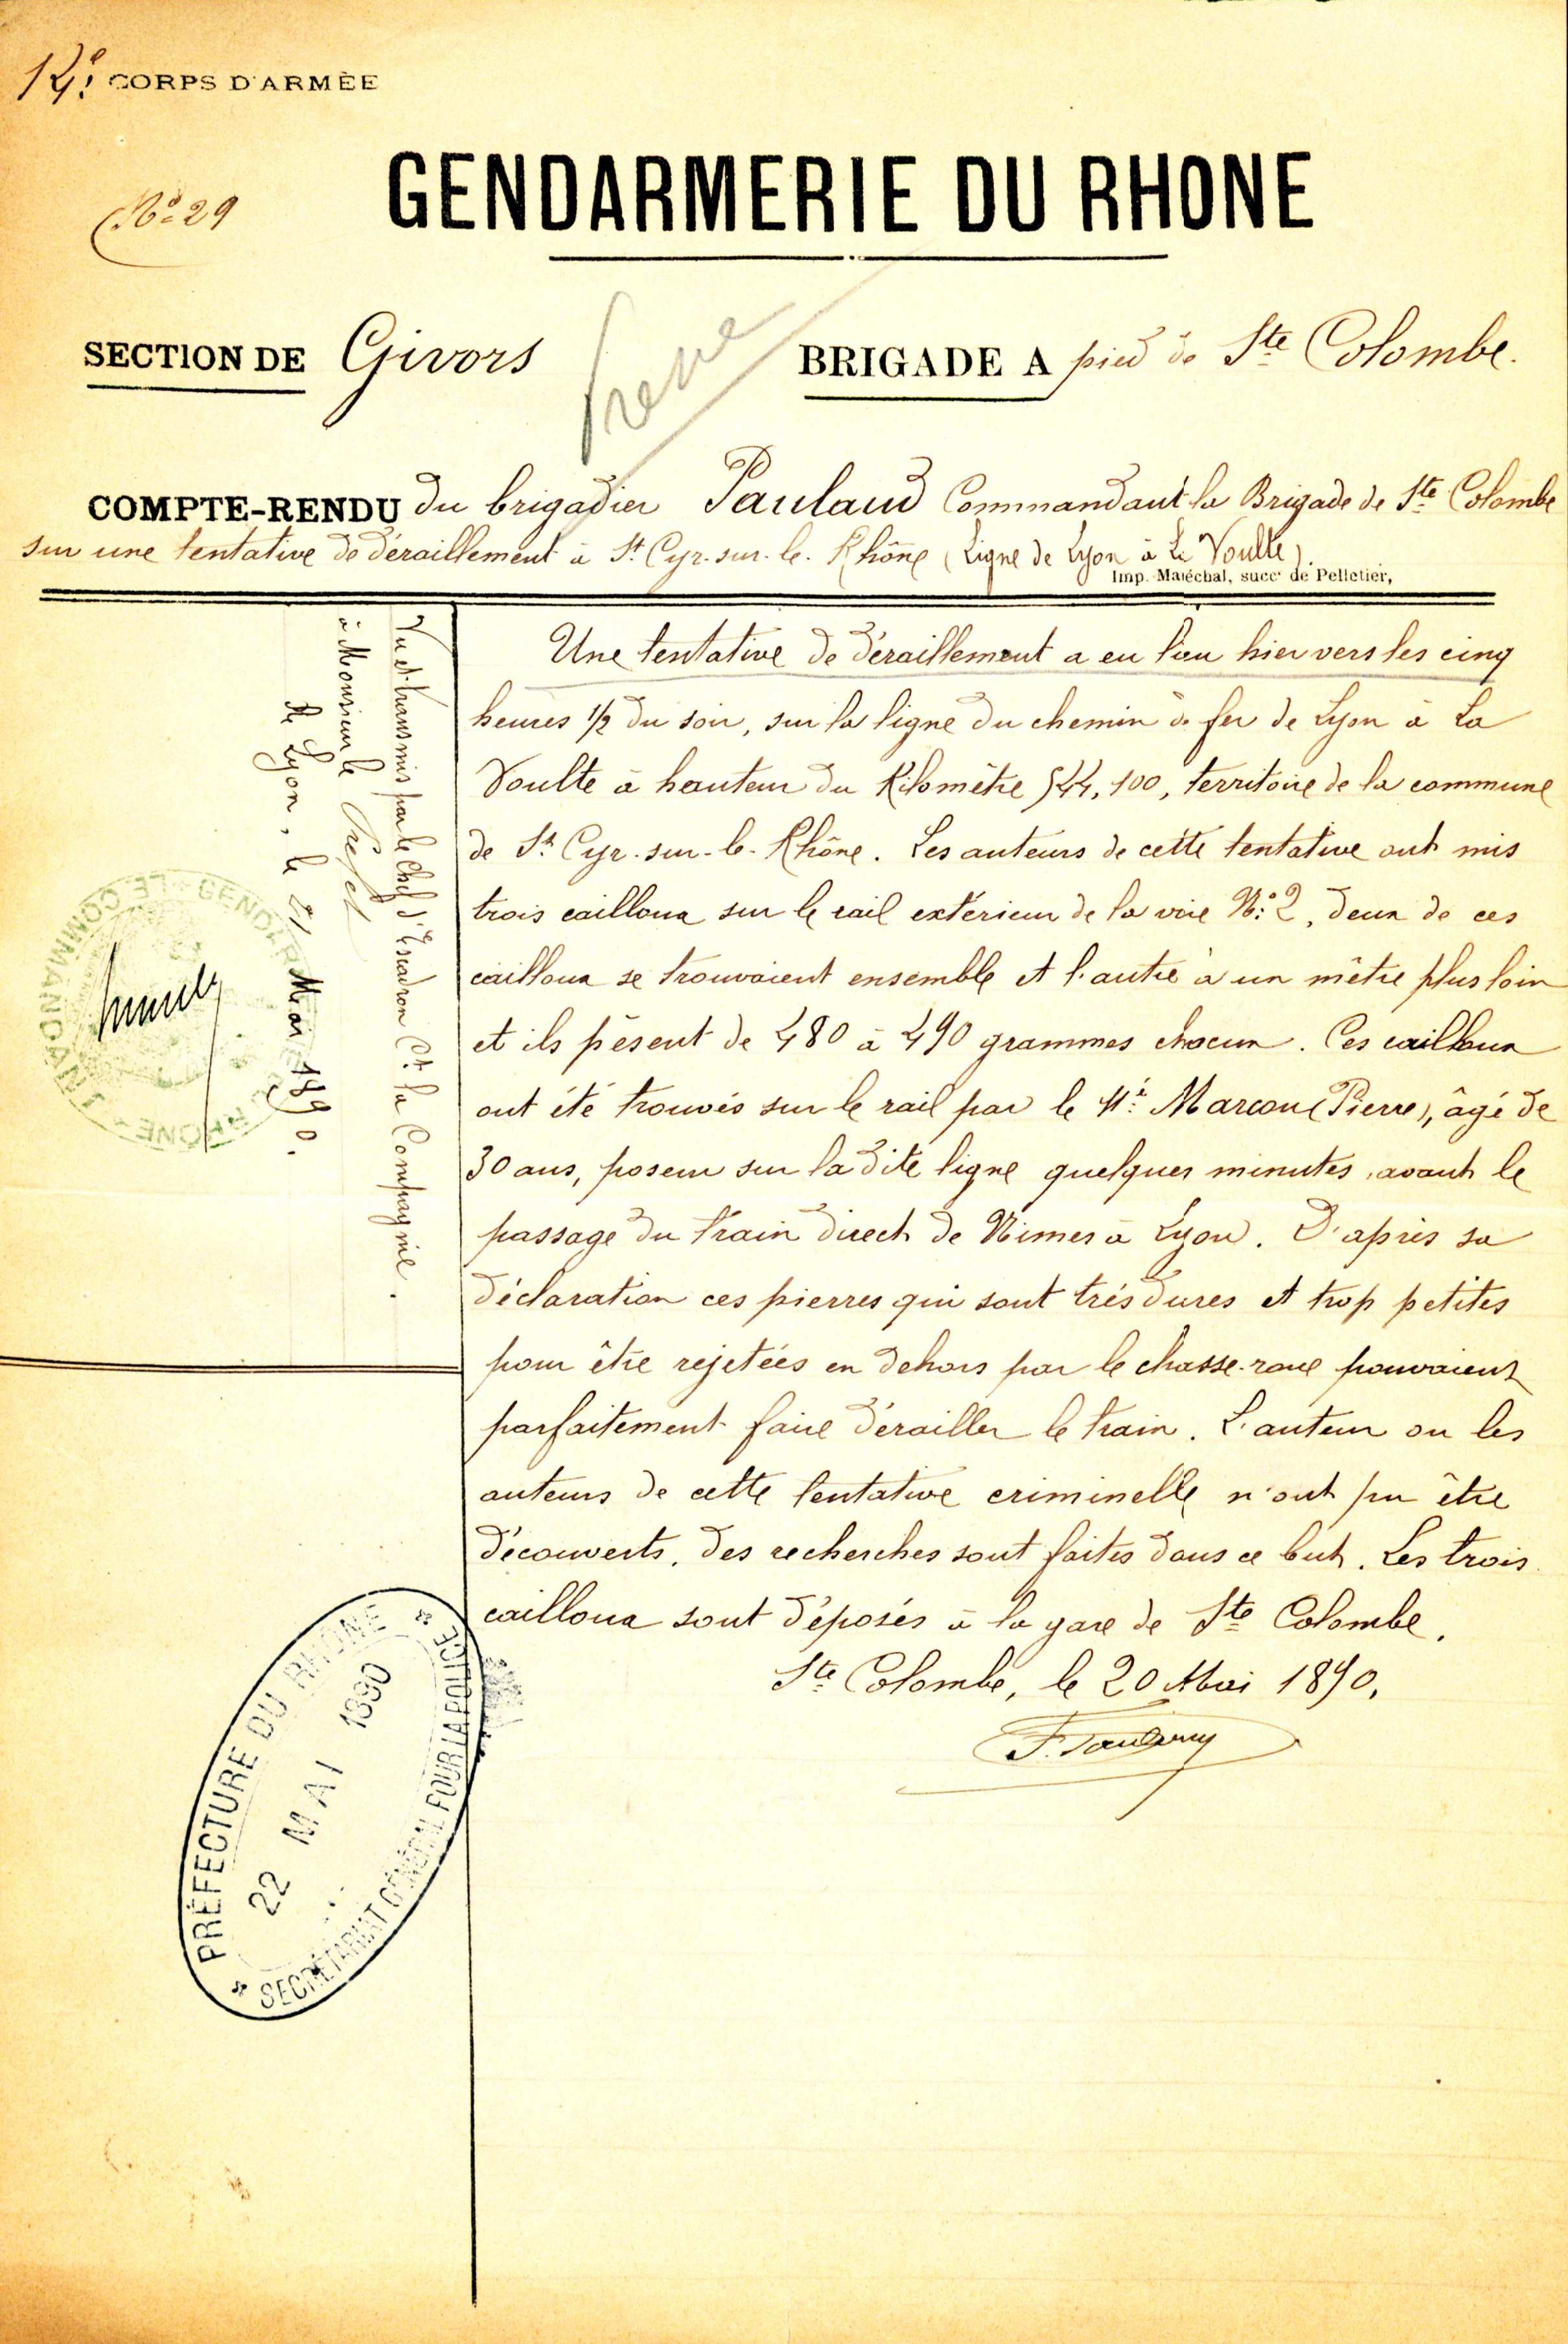 14e CORPS D'ARMÉE
No 29
GENDARMERIE DU RHONE
SECTION DE Givors
BRIGADE A pied de Ste Colombe.
COMPTE-RENDU du brigadier Paulaud Commandant la Brigade de Ste Colombe
sur une tentative de déraillement à St Cyr-sur-le-Rhône (Ligne de Lyon à La Voulte).
Imp. Maréchal, succr de Pelletier,
Vu et transmis par le Chef d'Escadron Ct la Compagnie.
à Monsieur le Préfet
de Lyon, le 21 Mai 1890.
Une tentative de déraillement a eu lieu hier vers les cinq
heures 1/2 du soir, sur la ligne du chemin de fer de Lyon à La
Voulte à hauteur du Kilomètre 544,100, territoire de la commune
de St Cyr-sur-le-Rhône. Les auteurs de cette tentative ont mis
trois cailloux sur le rail extérieur de la voie No 2, deux de ces
cailloux se trouvaient ensemble et l'autre à un mètre plus loin
et ils pèsent de 480 à 490 grammes chacun. Ces cailloux
ont été trouvés sur le rail par le Né Marcou (Pierre), âgé de
30 ans, poseur sur la dite ligne quelques minutes avant le
passage du train direct de Nimes à Lyon. D'après sa
déclaration ces pierres qui sont très dures et trop petites
pour être rejetées en dehors par le chasse-roue pouvaient
parfaitement faire dérailler le train. L'auteur ou les
auteurs de cette tentative criminelle n'ont pu être
découverts, des recherches sont faites dans ce but. Les trois
cailloux sont déposés à la gare de Ste Colombe.
Ste Colombe, le 20 Mai 1890,
GENDARMERIE
LE COMMANDANT
RHONE
PRÉFECTURE DU RHONE
22 MAI 1890
SECRÉTARIAT GÉNÉRAL POUR LA POLICE